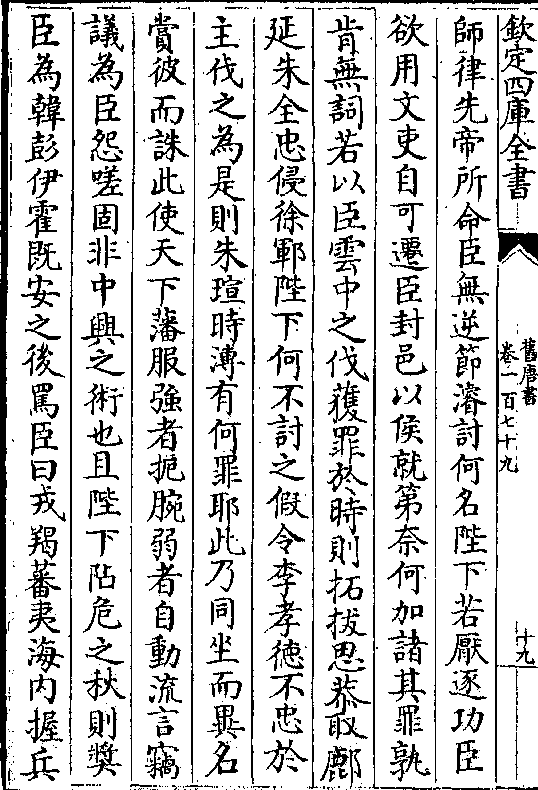 欽定四庫全書
舊唐書
卷一百七十九
十九
師律先帝所命臣無逆節濬討何名陛下若厭逐功臣
欲用文吏自可遷臣封邑以侯就第奈何加諸其罪孰
肯無詞若以臣雲中之伐獲罪於時則拓拔思恭取鄜
延朱全忠侵徐鄆陛下何不討之假令李孝徳不忠於
主伐之為是則朱瑄時溥有何罪耶此乃同坐而異名
賞彼而誅此使天下藩服強者扼腕弱者自動流言竊
議為臣怨嗟固非中興之術也且陛下阽危之秋則奬
臣為韓彭伊霍既安之後罵臣曰戎羯蕃夷海内握兵